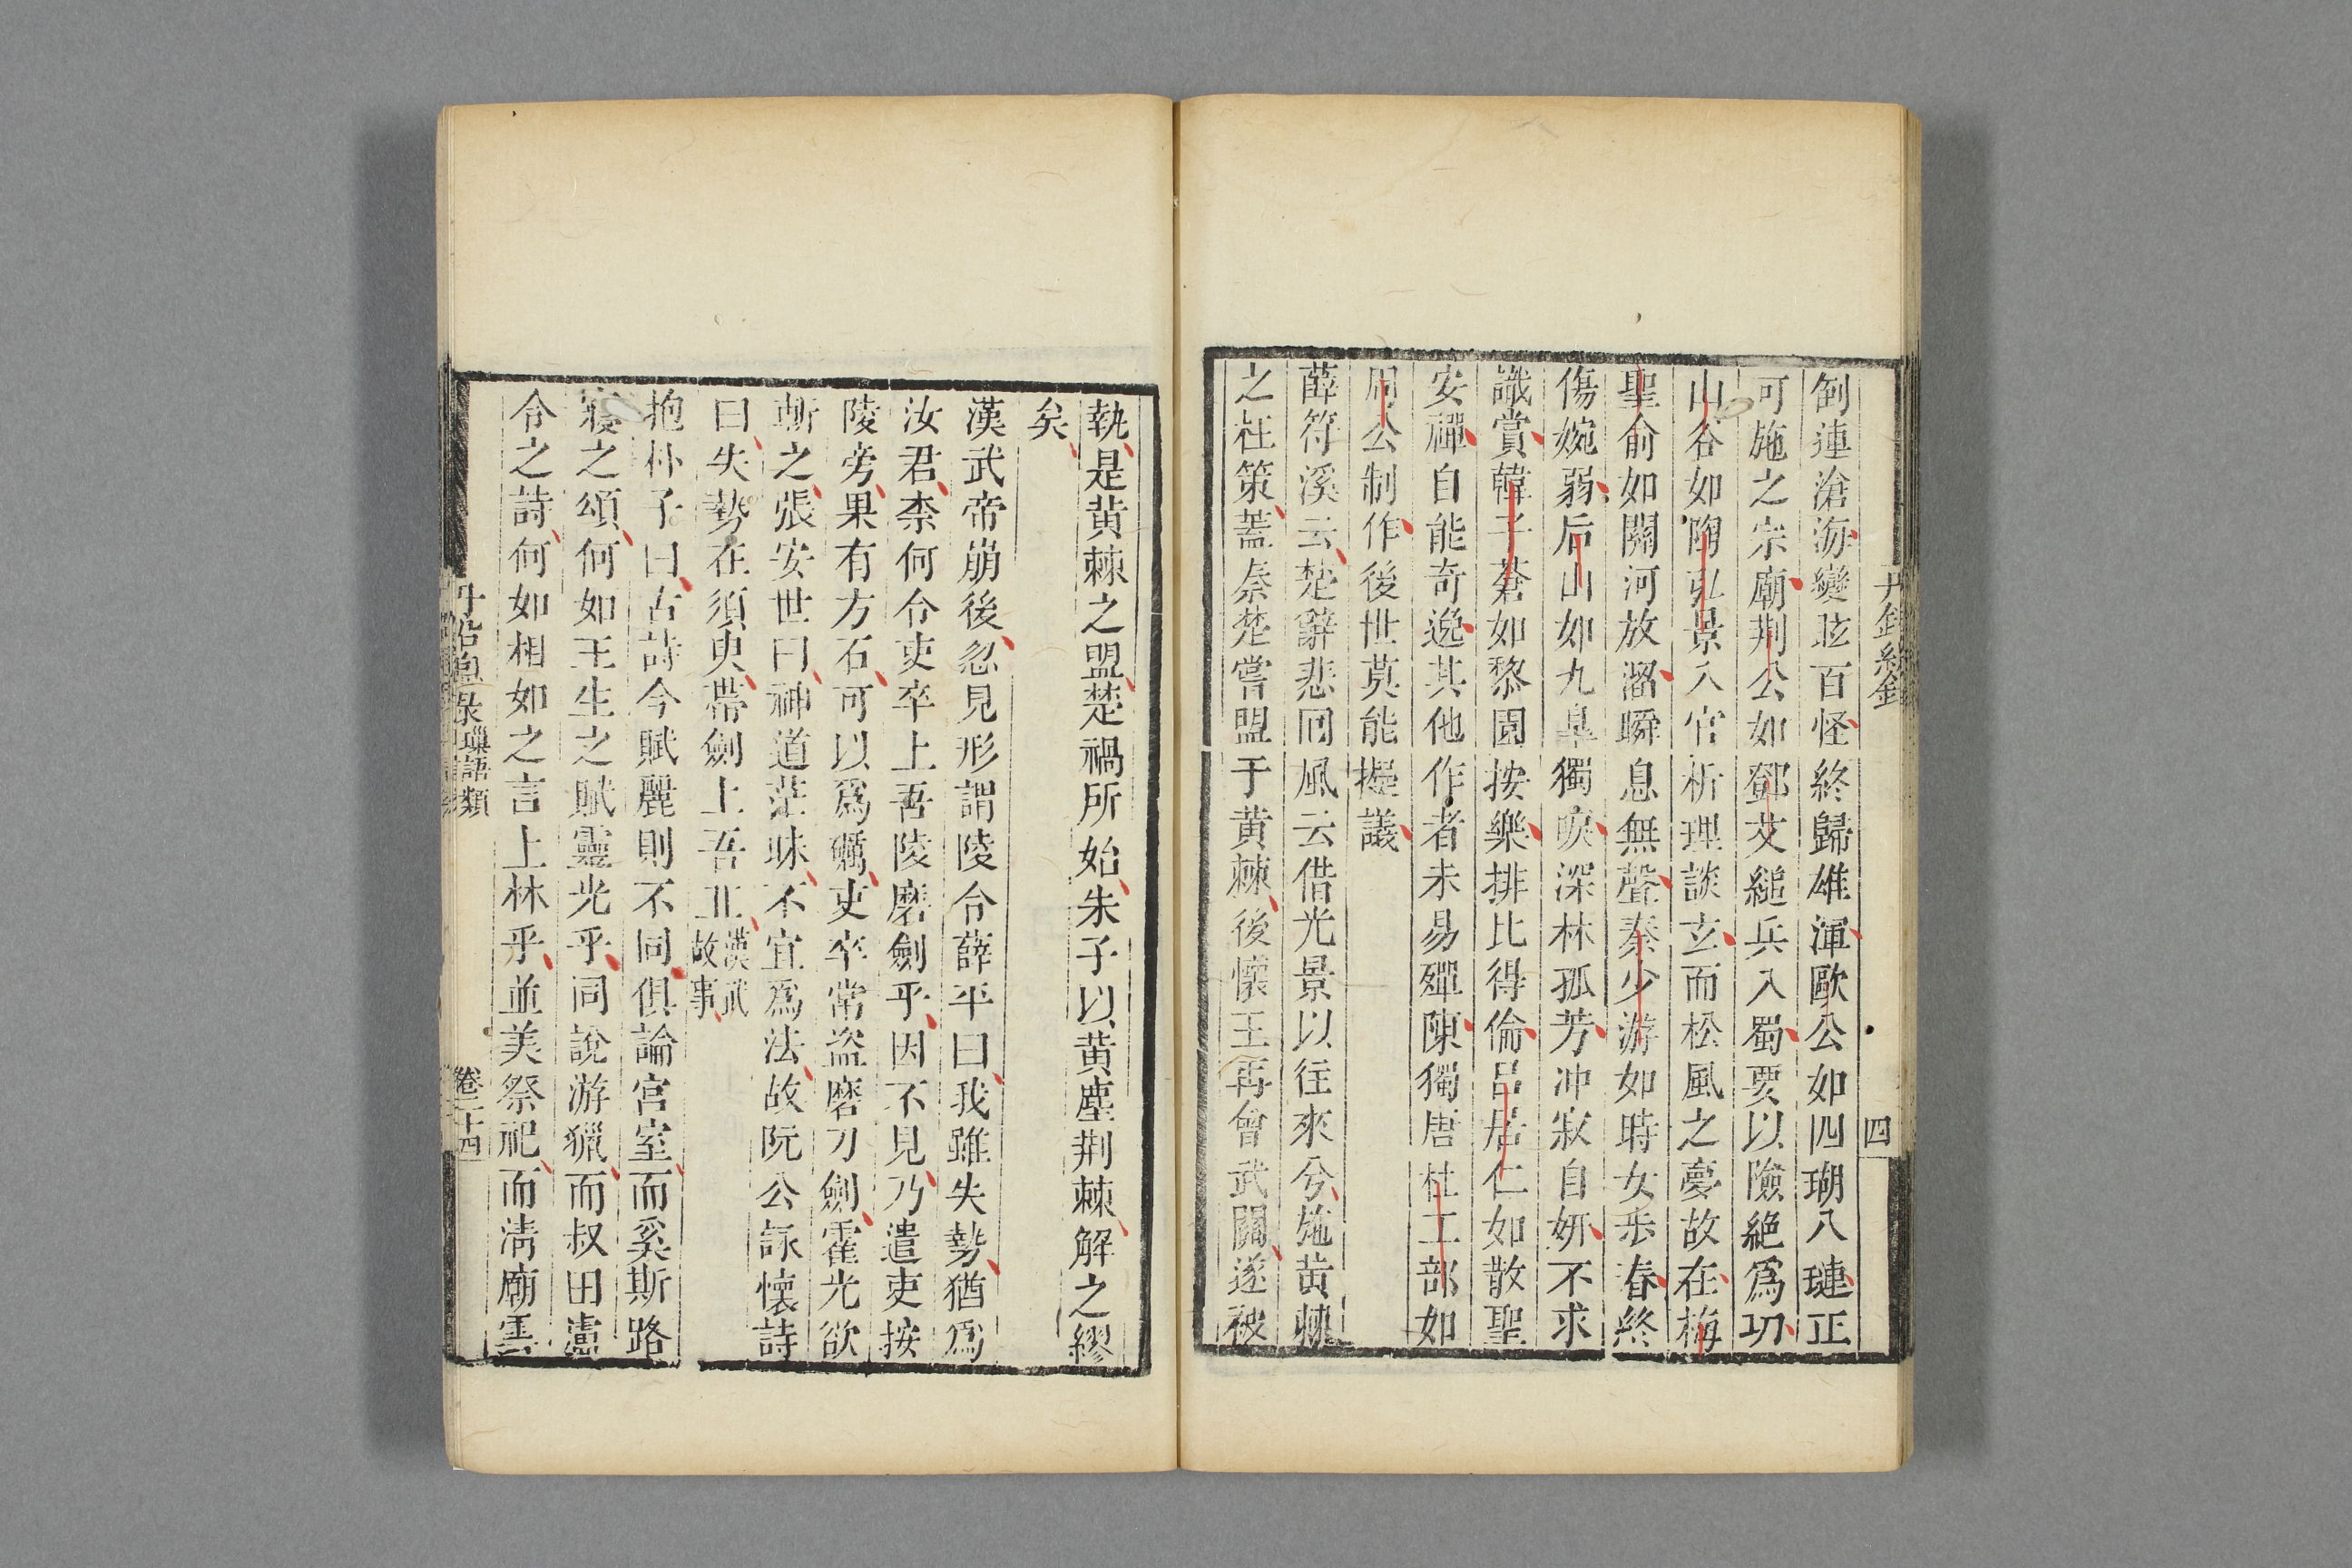 倒連滄海變眩百怪終歸雄渾歐公如四瑚八璉正
可施之宗廟荆公如鄧艾縋兵入蜀要以險絕爲功
山谷如陶弘景入官析理談玄而松風之夢故在梅
聖俞如關河放溜瞬息無聲秦少游如時女步春終
傷婉弱后山如九臯獨唳深林孤芳冲寂自妍不求
識賞韓子蒼如黎園按樂排比得倫呂居仁如散聖
安禪自能奇逸其他作者未易殫陳獨唐杜工部如
周公制作後世莫能擬議
薛符溪云楚辭悲囘風云借光景以往來兮施黄棘
之枉策蓋秦楚嘗盟于黄棘後懷王再會武關遂被
四
執是黄棘之盟楚禍所始朱子以黄塵荆棘解之繆
矣
漢武帝崩後忽見形謂陵令薛平曰我雖失勢猶爲
汝君柰何令吏卒上吾陵磨劍乎因不見乃遣吏按
陵旁果有方石可以爲礪吏卒常盗磨刀劍霍光欲
斬之張安世曰神道茫昧不宜爲法故阮公詠懷詩
曰失勢在須臾帶劍上吾丘漢武故事
抱朴子曰古詩今賦麗則不同俱論宮室而奚斯路
寢之頌何如王生之賦靈光乎同說游獵而叔田盧
令之詩何如相如之言上林乎並美祭祀而清廟雲
丹鉛總錄瑣語類 卷二十四